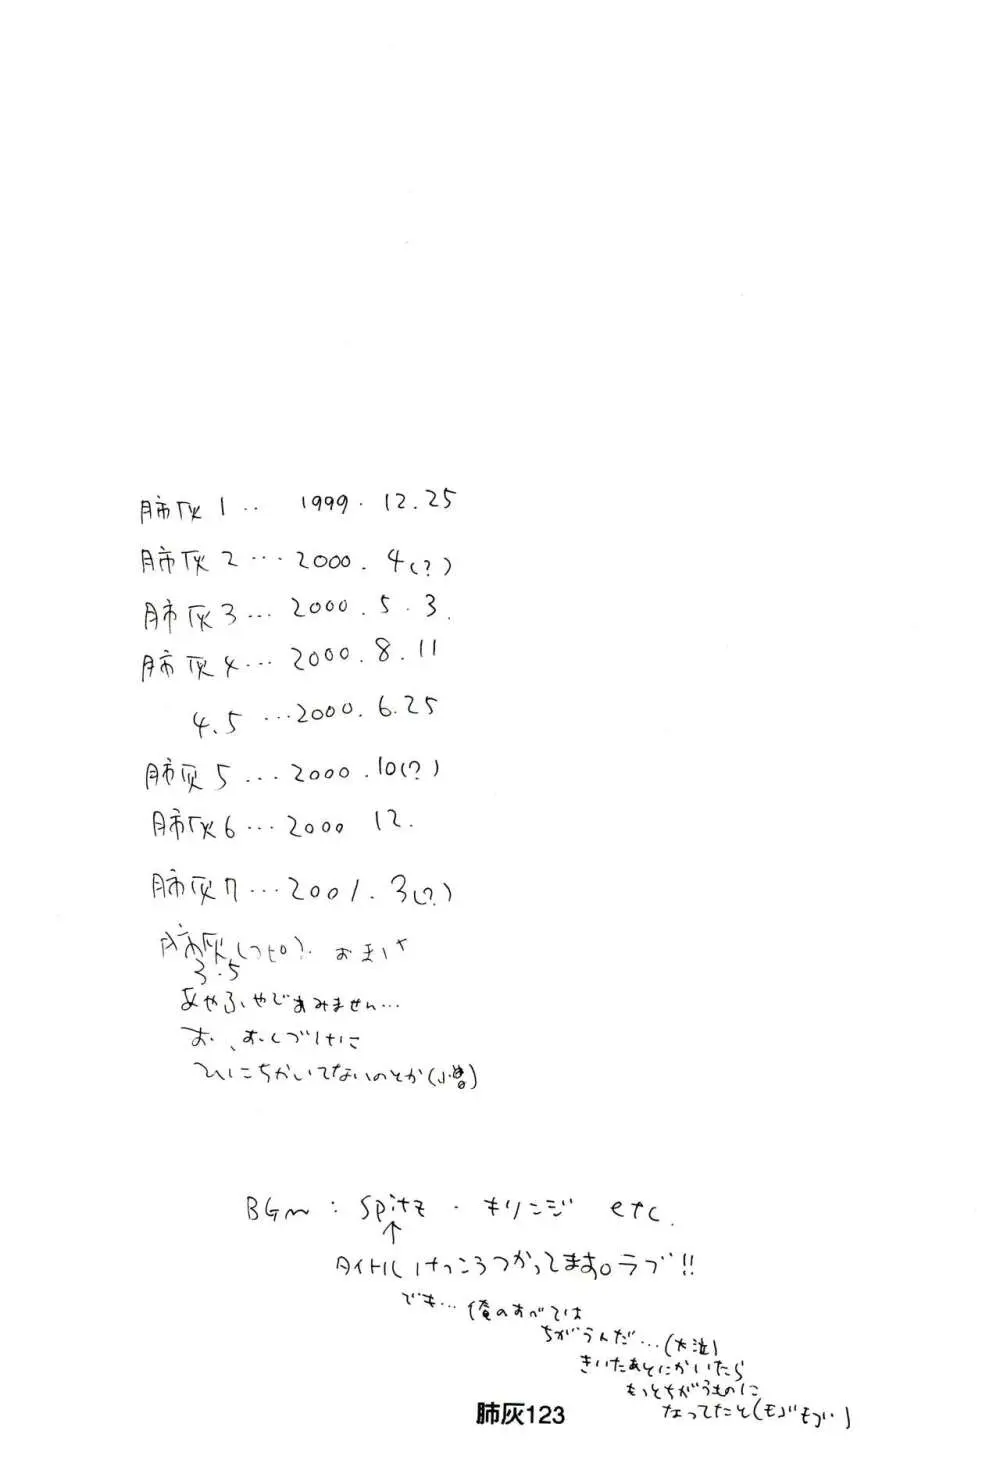 肺灰1‥ 1999.12.25
肺灰2…2000.4(?)
肺灰3…2000.5.3.
肺灰4…2000.8.11
4.5…2000.6.25
肺灰5…2000.10(?)
肺灰6…2000 12.
肺灰7…2001.3(?)
肺灰(コピ). おまけ
3.5
あやふやですみません…
お、おくづけに
ひにちかいてないのとか(小
BGM:Spitz・キリンジ etc.
↑
タイトルけっこうつかってます。ラブ!!
でも…俺のすべては
ちがうんだ…(大泣)
きいたあとにかいたら
もっとちがうものに
なってたと(モゴモゴ)
肺灰123